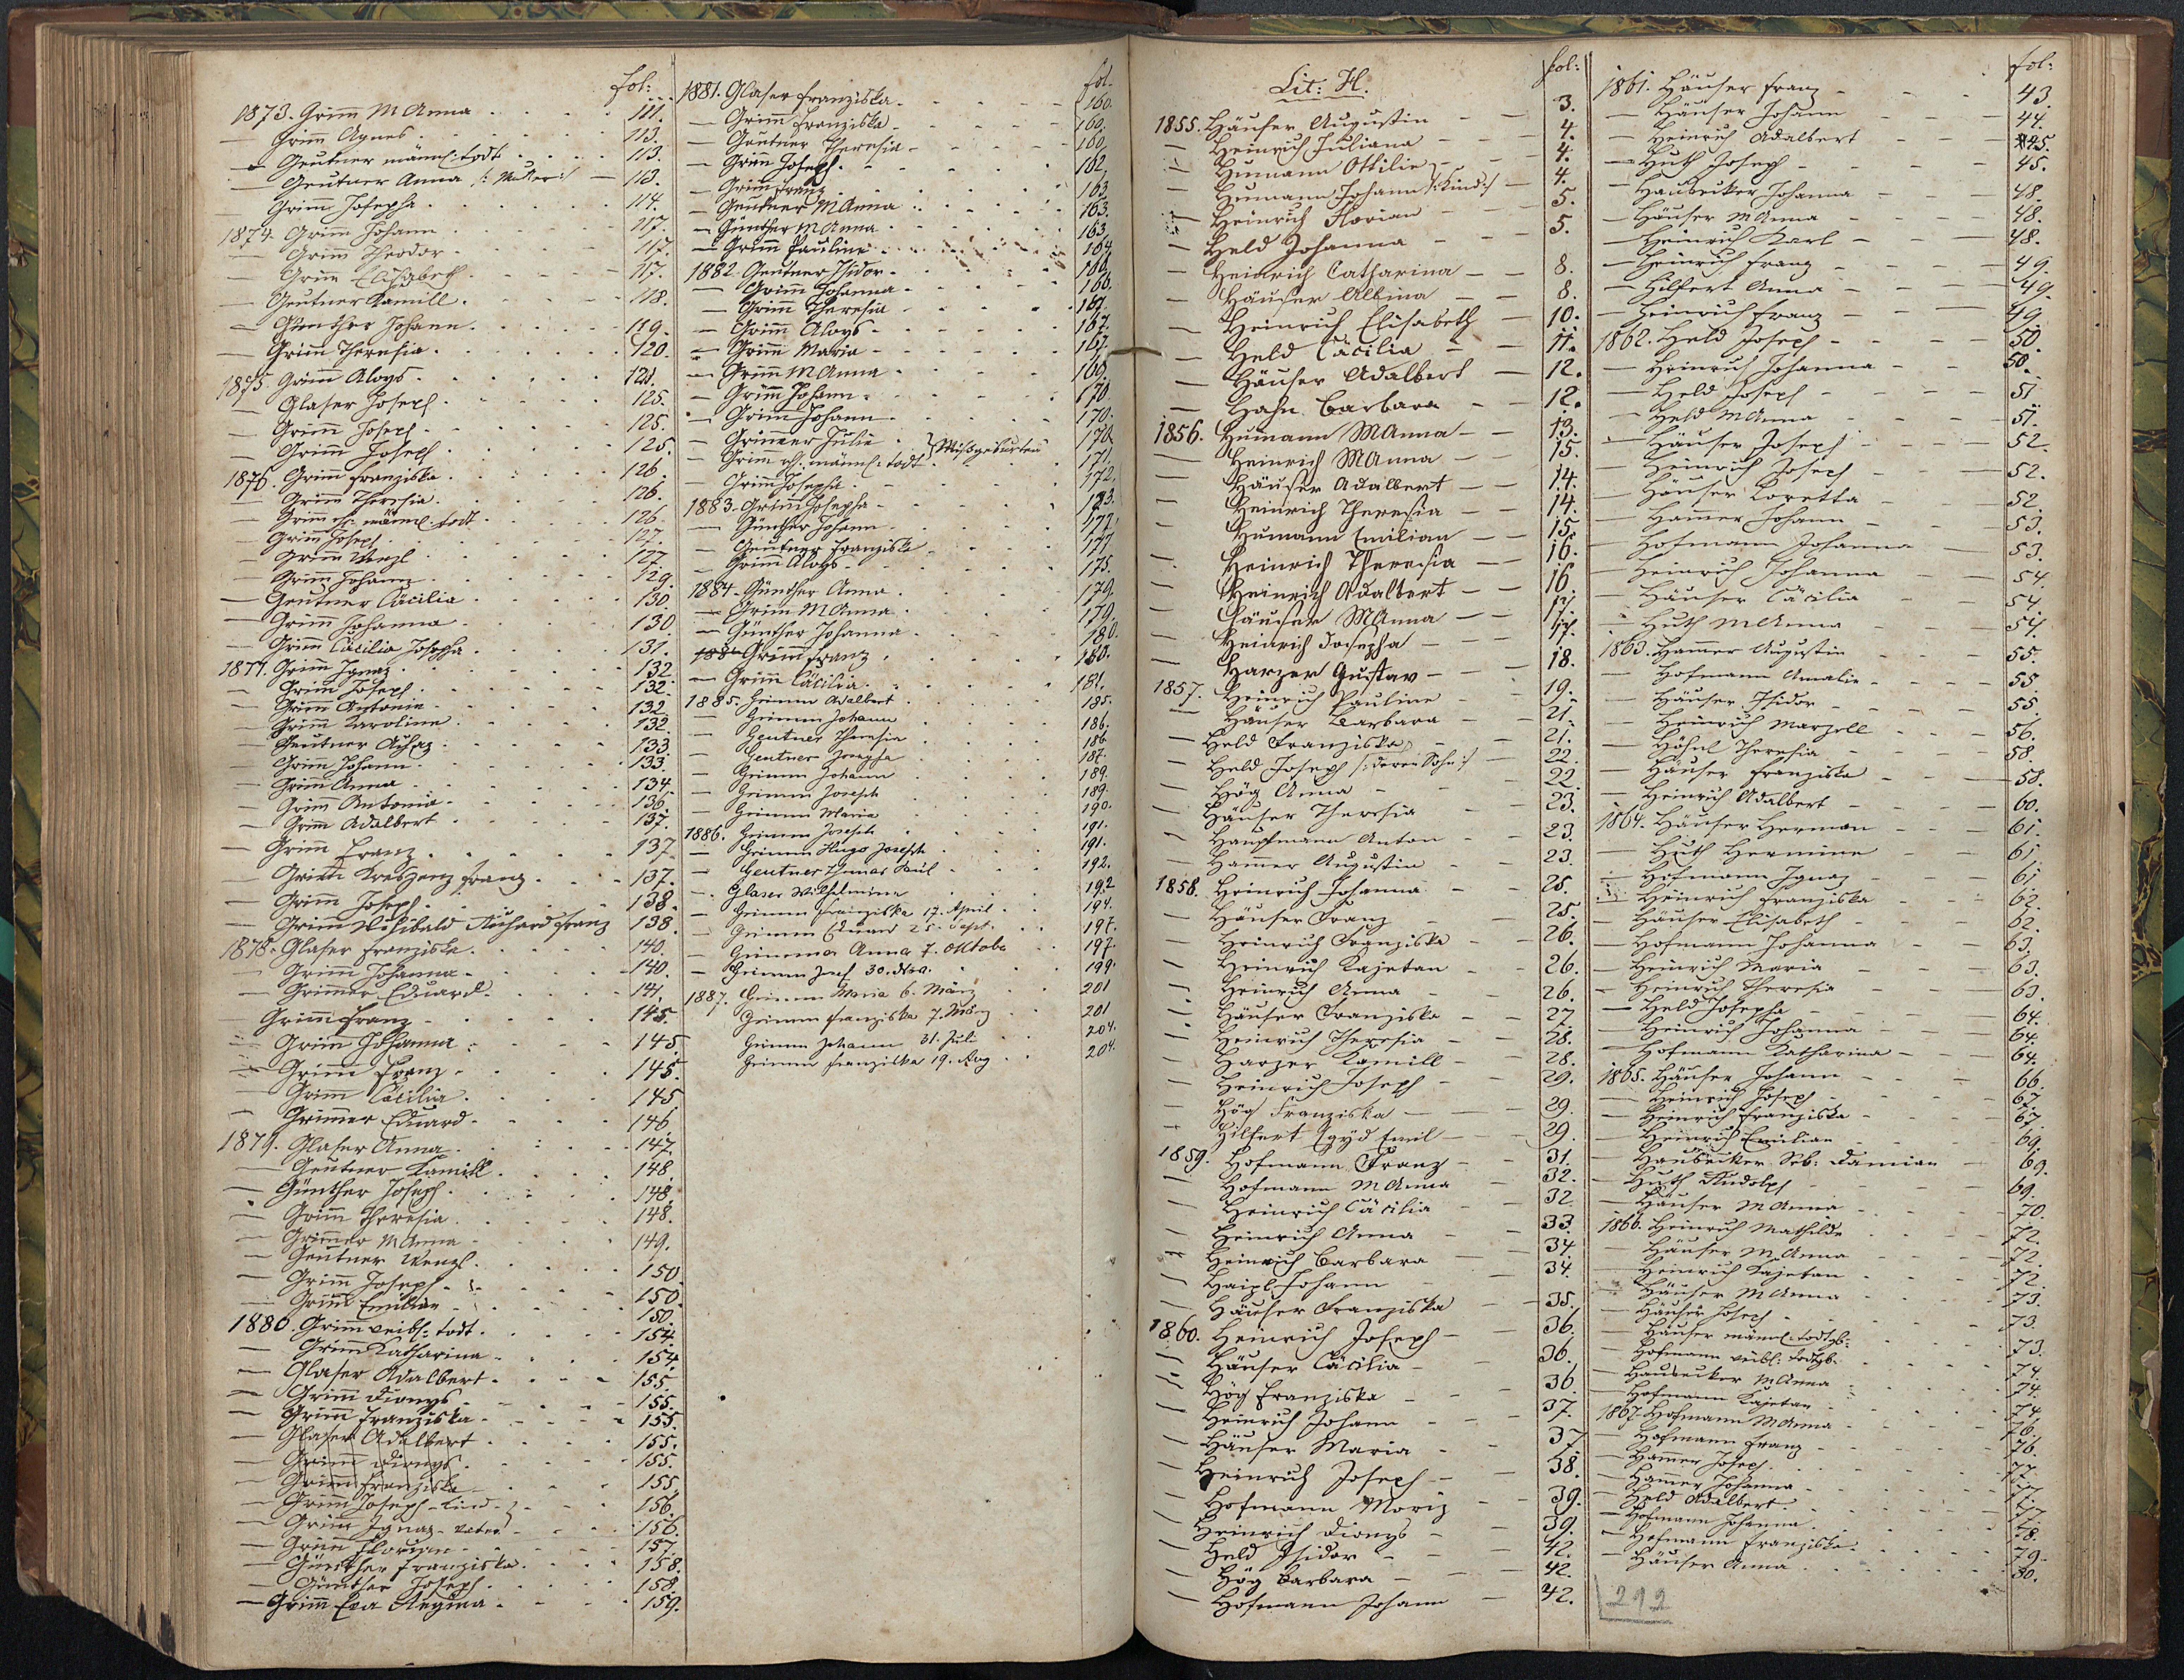 fol:
1873. Grimm M Anna . . . 111.
— Grimm Agnes . . . 113.
— Geutner männl: todt . . . 113.
— Geutner Anna /: Mutter :/ — 113.
— Grimm Josepha . . . 114.
1874. Grimm Johann . . . 117.
— Grimm Theodor . . . 117.
— Grimm Elisabeth . . . 117.
— Geutner Kamill . . . 118.
— Günther Johann . . . 119.
— Grimm Theresia . . . 120.
1875. Grimm Aloys . . . 121.
— Glaser Joseph . . . 125.
— Grimm Joseph . . . 125.
— Grimm Joseph . . . 125.
1876. Grimm Franziska . . . 126.
— Grimm Theresia . . . 126.
— Grimm männl. todt . . . 126.
— Grimm Joseph . . . 127.
— Grimm Wenzl . . . 127.
— Grimm Johann . . . 129.
— Geutner Cäcilia . . . 130.
— Grimm Johanna . . . 130.
— Grimm Cäcilia Josepha . . . 131.
1877. Grimm Ignaz . . . 132.
— Grimm Joseph . . . 132.
— Grimm Antonie . . . 132.
— Grimm Karoline . . . 132.
— Geutner . . . 133.
— Grimm Johann . . . 133.
— Grimm Anna . . . 134.
— Grimm Antonia . . . 136.
— Grimm Adalbert . . . 137.
— Grimm Franz . . . 137.
— Grimm Kreszenz Franz . . . 137.
— Grimm Joseph . . . 138.
— Grimm Richard Franz 138.
1878. Glaser Franziska . . . 140.
— Grimm Johanna . . . 140.
— Grimmer Eduard . . . 141.
Grimm Franz . . . 145.
— Grimm Johanna . . . 145.
— Grimm Franz . . . 145.
— Grimm Cäcilia . . . 145
— Grimmer Eduard . . . 146.
1879. Glaser Anna . . . 147.
— Geutner Kamill . . . 148.
— Günther Joseph . . . 148.
— Grimm Theresia . . . 148.
— Grimmer M Anna . . . 149.
— Geutner Wenzl . . . 150.
— Grimm Joseph . . . 150.
— Grimm Emilian . . . 150.
1880. Grimm weibl: todt . . . 154.
— Grimm Katharina . . . 154.
— Glaser Adalbert . . . 155.
— Grimm Dionys . . . 155.
— Grimm Franziska . . . 155.
— Glaser Adalbert . . . 155.
— Grimm Dionys . . . 155.
— Grimm Franziska . . . 155.
— Grimm Joseph - Kind - . . . 156.
— Grimm Ignaz - Vater . . . 156.
— Grimm Florian . . . 157.
— Günther Franziska . . . 158.
— Günther Joseph . . . 158.
— Grimm Eva Regina . . . 159.
fol.
1881. Glaser Franziska . . . 160.
— Grimm Franziska . . . 160.
— Geutner Theresia . . . 160.
— Grimm Joseph . . . 162.
— Grimm Franz . . . 163.
— Geutner M Anna . . . 163.
— Günther M Anna . . . 163.
— Grimm Pauline . . . 164.
1882. Geutner Isidor . . . 166.
— Grimm Johanna . . . 166.
— Grimm Theresia . . . 167.
— Grimm Aloys . . . 167.
— Grimm Maria . . . 167.
— Grimm M Anna . . . 168.
— Grimm Johann . . . 170.
— Grimm Johann . . . 170.
— Grimmer Julie . . . 170.
— Grimm männl: todt } Missgeburten 171.
— Grimm Josepha . . . 172.
1883. Grimm Josepha . . . 173.
— Günther Johann . . . 177.
— Geutner Franziska . . . 177.
— Grimm Aloys . . . 175.
1884. Günther Anna . . . 179.
— Grimm M Anna . . . 179.
— Günther Johanna . . . 180.
Grimm Franz . . . 180.
— Grimm Cäcilia . . . 181.
1885. Grimm Adalbert . . . 185.
— Grimm Johann . . . 186.
— Geutner Theresia . . . 186.
— Geutner Josepha . . . 187.
— Grimm Johann . . . 189.
— Grimm Joseph . . . 189.
— Grimm Maria . . . 190.
1886. Grimm Joseph . . . 191.
— Grimm Hugo Joseph . . . 191.
— Geutner Thomas Paul . . . 192.
— Glaser Wilhelmine . . . 192
— Grimm Franziska 17. April . . 194.
— Grimm Eduard 25. Sept. . . 197.
— Grimmer Anna 7. Oktober 197.
— Grimm Josef 30. Nov. . . 199.
1887. Grimm Maria 6. März . . 201
Grimm Franziska 7. März . . 201
Grimm Johann 31. Juli . . 204.
Grimm Franziska 19. Aug . . 204.
Lit: H. fol:
1855. Häuser Augustin — 3.
— Heinrich Juliana — 4.
— Humann Ottilie — 4.
— Humann Johann /: Kind :/ — 4.
— Heinrich Florian — 5.
— Held Johanna — 5.
— Heinrich Catharina — 8.
— Häuser Albina — 8.
— Heinrich Elisabeth — 10.
— Held Cäcilia — 11.
— Häuser Adalbert — 12.
— Hahn Barbara — 12.
1856. Humann MAnna — 13.
— Heinrich MAnna — 15.
— Häuser Adalbert — 14.
— Heinrich Theresia — 14.
— Humann Emilian — 15.
— Heinrich Theresia — 16.
— Heinrich Adalbert — 16.
— Häuser MAnna — 17.
— Heinrich Josepha — 17.
— Harzer Gustav — 18.
1857. Heinrich Pauline — 19.
— Häuser Barbara — 21.
— Held Franziska — 21.
— Held Joseph /: deren Sohn :/ 22.
— Hög Anna — 22.
— Häuser Theresia — 23.
— Hauptmann Anton 23.
— Hammer Augustin — 23.
1858. Heinrich Johanna — 25.
— Häuser Franz — 25.
— Heinrich Franziska — 26.
— Heinrich Kajetan — 26.
— Heinrich Anna — 26.
— Häuser Franziska — 27.
— Heinrich Theresia — 28.
— Harzer Kamill — 28.
— Heinrich Joseph — 29.
— Hög Franziska — 29.
— Hilfert Egyd Emil — 29.
1859. Hofmann Franz — 31.
— Hofmann M Anna — 32.
— Heinrich Cäcilia — 32.
— Heinrich Anna — 33.
— Heinrich Barbara 34.
— Haizl Johann — 34.
— Häuser Franziska — 35.
1860. Heinrich Joseph — 36.
— Häuser Cäcilia — 36.
— Hög Franziska — 36.
— Heinrich Johann — 37.
— Häuser Maria — 37.
— Heinrich Joseph — 38.
— Hofmann Moriz — 39.
— Heinrich Dionys — 39.
— Held Isidor — 42.
— Hög Barbara — 42.
— Hofmann Johann — 42.
fol:
1861. Häuser Franz — 43.
— Häuser Johann — 44.
— Heinrich Adalbert 45.
— Huth Joseph — 45.
— Haubecker Johanna — 48.
— Häuser M Anna — 48.
— Heinrich Karl — 48.
— Heinrich Franz — 49.
— Hilfert Anna — 49.
— Heinrich Franz — 49.
1862. Held Joseph — 50.
— Heinrich Johanna — 50.
— Held Joseph — 51.
— Held M Anna — 51.
— Häuser Joseph — 52.
— Heinrich Joseph — 52.
— Häuser Loretta — 52.
— Hammer Johann — 53.
— Hofmann Johanna — 53.
— Heinrich Johanna — 54.
— Häuser Cäcilia — 54.
— Huth M Anna — 54.
1863. Hammer Augustin — 55.
— Hofmann Amalie — 55.
— Häuser Isidor — 55.
— Heinrich Marzell — 56.
— Höhnl Theresia — 58.
— Häuser Franziska — 58.
— Heinrich Adalbert — 60.
1864. Häuser Herman — 61.
— Huth Hermine — 61.
— Hofmann Ignaz — 61.
— Heinrich Franziska — 62.
— Häuser Elisabeth — 62.
— Hofmann Johanna — 63.
— Heinrich Maria — 63.
— Heinrich Theresia — 63.
— Held Josepha — 64.
— Heinrich Johanna — 64.
— Hofmann Katharina — 64.
1865. Häuser Johann — 66.
— Heinrich Joseph — 67.
— Heinrich Franziska — 67.
— Heinrich Emilian — 69.
— Haubecker Seb: Damian — 69.
— Huth Rudolph — 69.
— Häuser M Anna . . . 70.
1866. Heinrich Mathilde . . . 72.
— Häuser M Anna . . . 72.
— Heinrich Kajetan . . . 72.
— Häuser M Anna . . . 73.
— Häuser Joseph . . . 73.
— Häuser männl: todtgb: . . . 73.
— Hofmann weibl: todtgb: . . . 74.
— Haubecker M Anna . . . 74.
— Hofmann Kajetan . . . 74.
1867. Hofmann M Anna . . . 76.
— Hofmann Franz . . . 76.
— Hammer Joseph . . . 77.
— Hammer Johanna . . . 77.
— Held Adalbert . . . 77.
— Hofmann Johanna . . . 78.
— Hofmann Franziska . . . 79.
— Häuser Anna . . . 80.
292